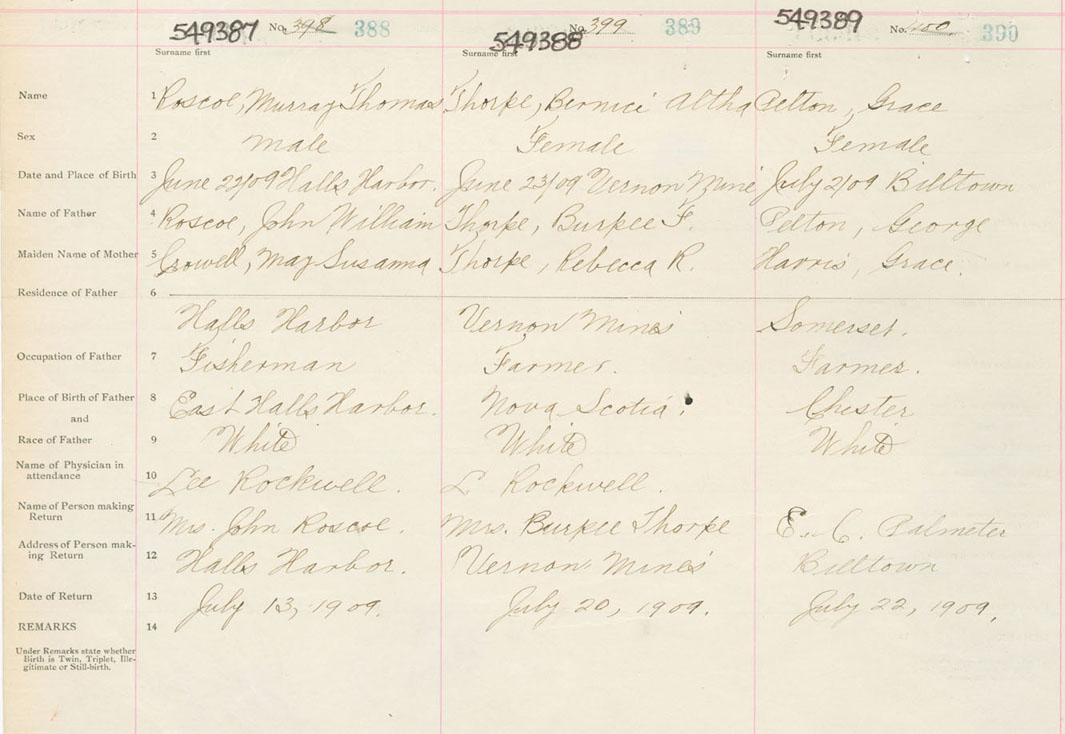 549387 No. 398 388 549388 No. 399 389 549389 No. 400 390
Surname first Surname first Surname first
Name 1 Roscoe, Murray Thomas Thorpe, Bernici Altha Pelton, Grace
Sex 2 Male Female Female
Date and Place of Birth 3 June 22/09 Halls Harbor. June 23/09 Vernon Mine July 2/09 Billtown
Name of Father 4 Roscoe, John William Thorpe, Burpee F. Pelton, George
Maiden Name of Mother 5 Crowell, May Susanna Thorpe, Rebecca R. Harris, Grace.
Residence of Father 6
Halls Harbor Vernon Mines Somerset.
Occupation of Father 7 Fisherman Farmer. Farmer.
Place of Birth of Father 8 East Halls Harbor. Nova Scotia. Chester
and
Race of Father 9 White White White
Name of Physician in
attendance 10 Lee Rockwell. L Rockwell.
Name of Person making
Return 11 Mrs. John Roscoe. Mrs. Burpee Thorpe E. C. Palmeter
Address of Person mak-
ing Return 12 Halls Harbor. Vernon Mines Billtown
Date of Return 13 July 13, 1909. July 20, 1909. July 22, 1909.
REMARKS 14
Under Remarks state whether
Birth is Twin, Triplet, Ille-
gitimate or Still-birth.